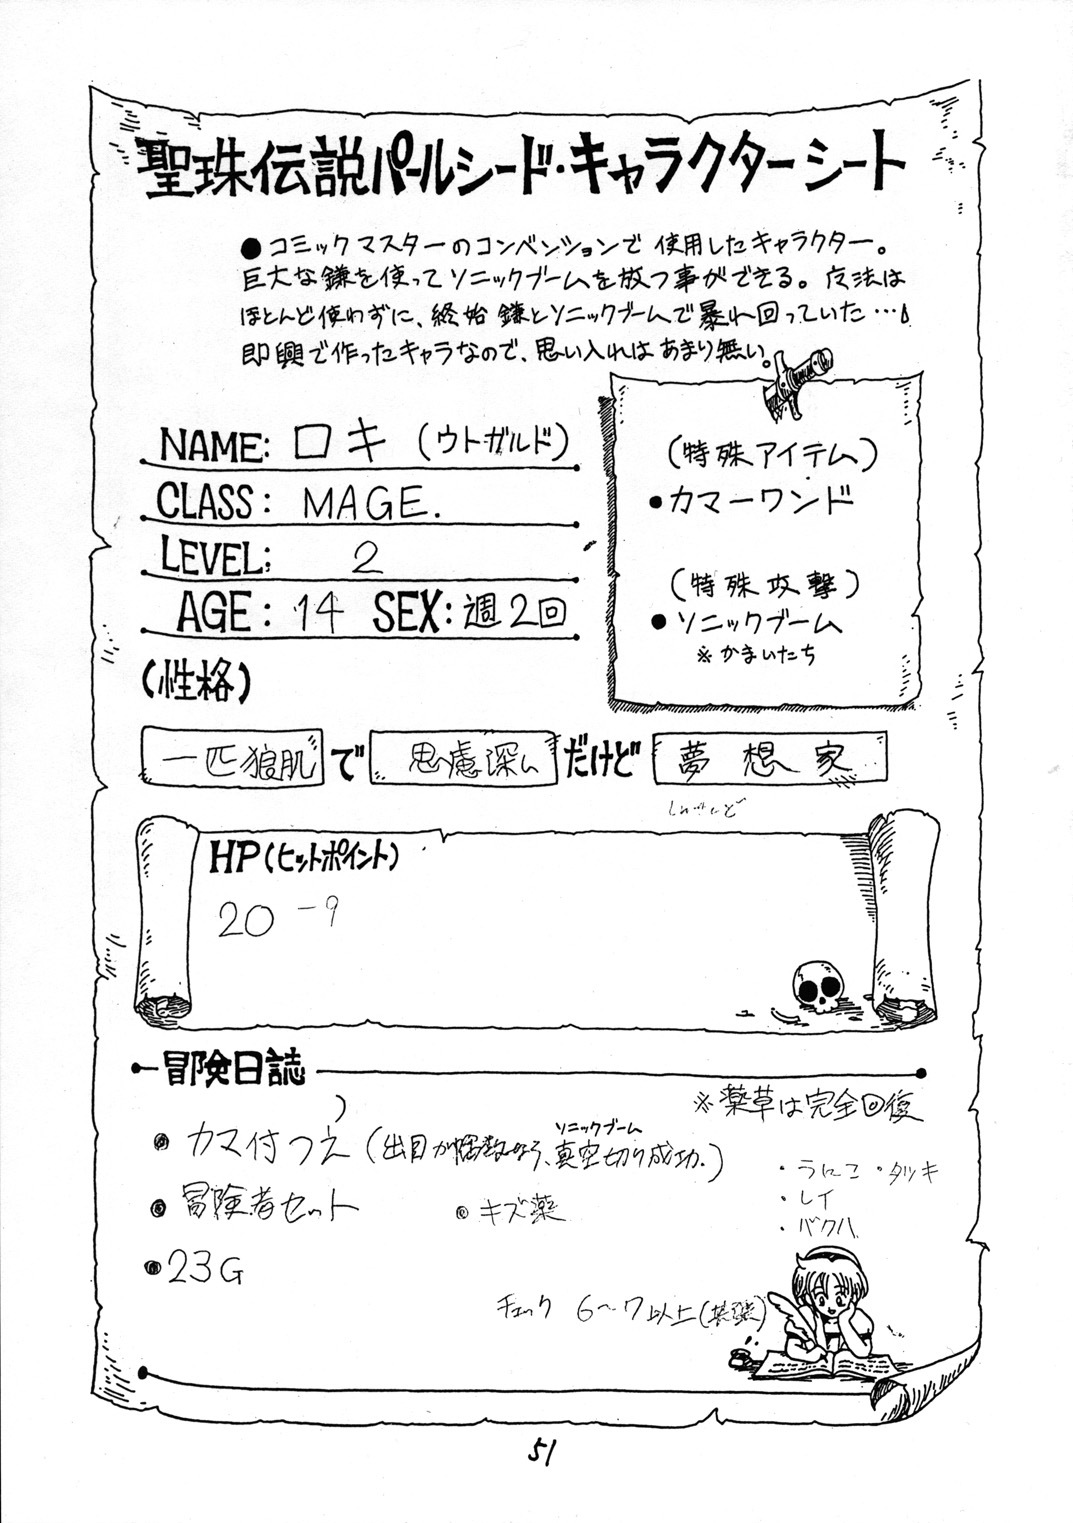 聖珠伝説パールシード・キャラクターシート
●コミックマスターのコンベンションで使用したキャラクター。
巨大な鎌を使ってソニックブームを放つ事ができる。魔法は
ほとんど使わずに、終始鎌とソニックブームで暴れ回っていた…
即興で作ったキャラなので、思い入れはあまり無い。
NAME: ロキ (ウトガルド)
CLASS: MAGE.
LEVEL: 2
AGE: 14 SEX: 週2回
(特殊アイテム)
●カマーワンド
(特殊攻撃)
●ソニックブーム
※かまいたち
(性格)
一匹狼肌で思慮深いだけど夢想家
HP(ヒットポイント)
20 -9
冒険日誌
※薬草は完全回復
ソニックブーム
●カマ付つえ(出目が偶数なら、真空切り成功.)
●冒険者セット ●キズ薬
●23G
・うにこ・タツキ
・レイ
・バクハ
チェック 6〜7以上
51